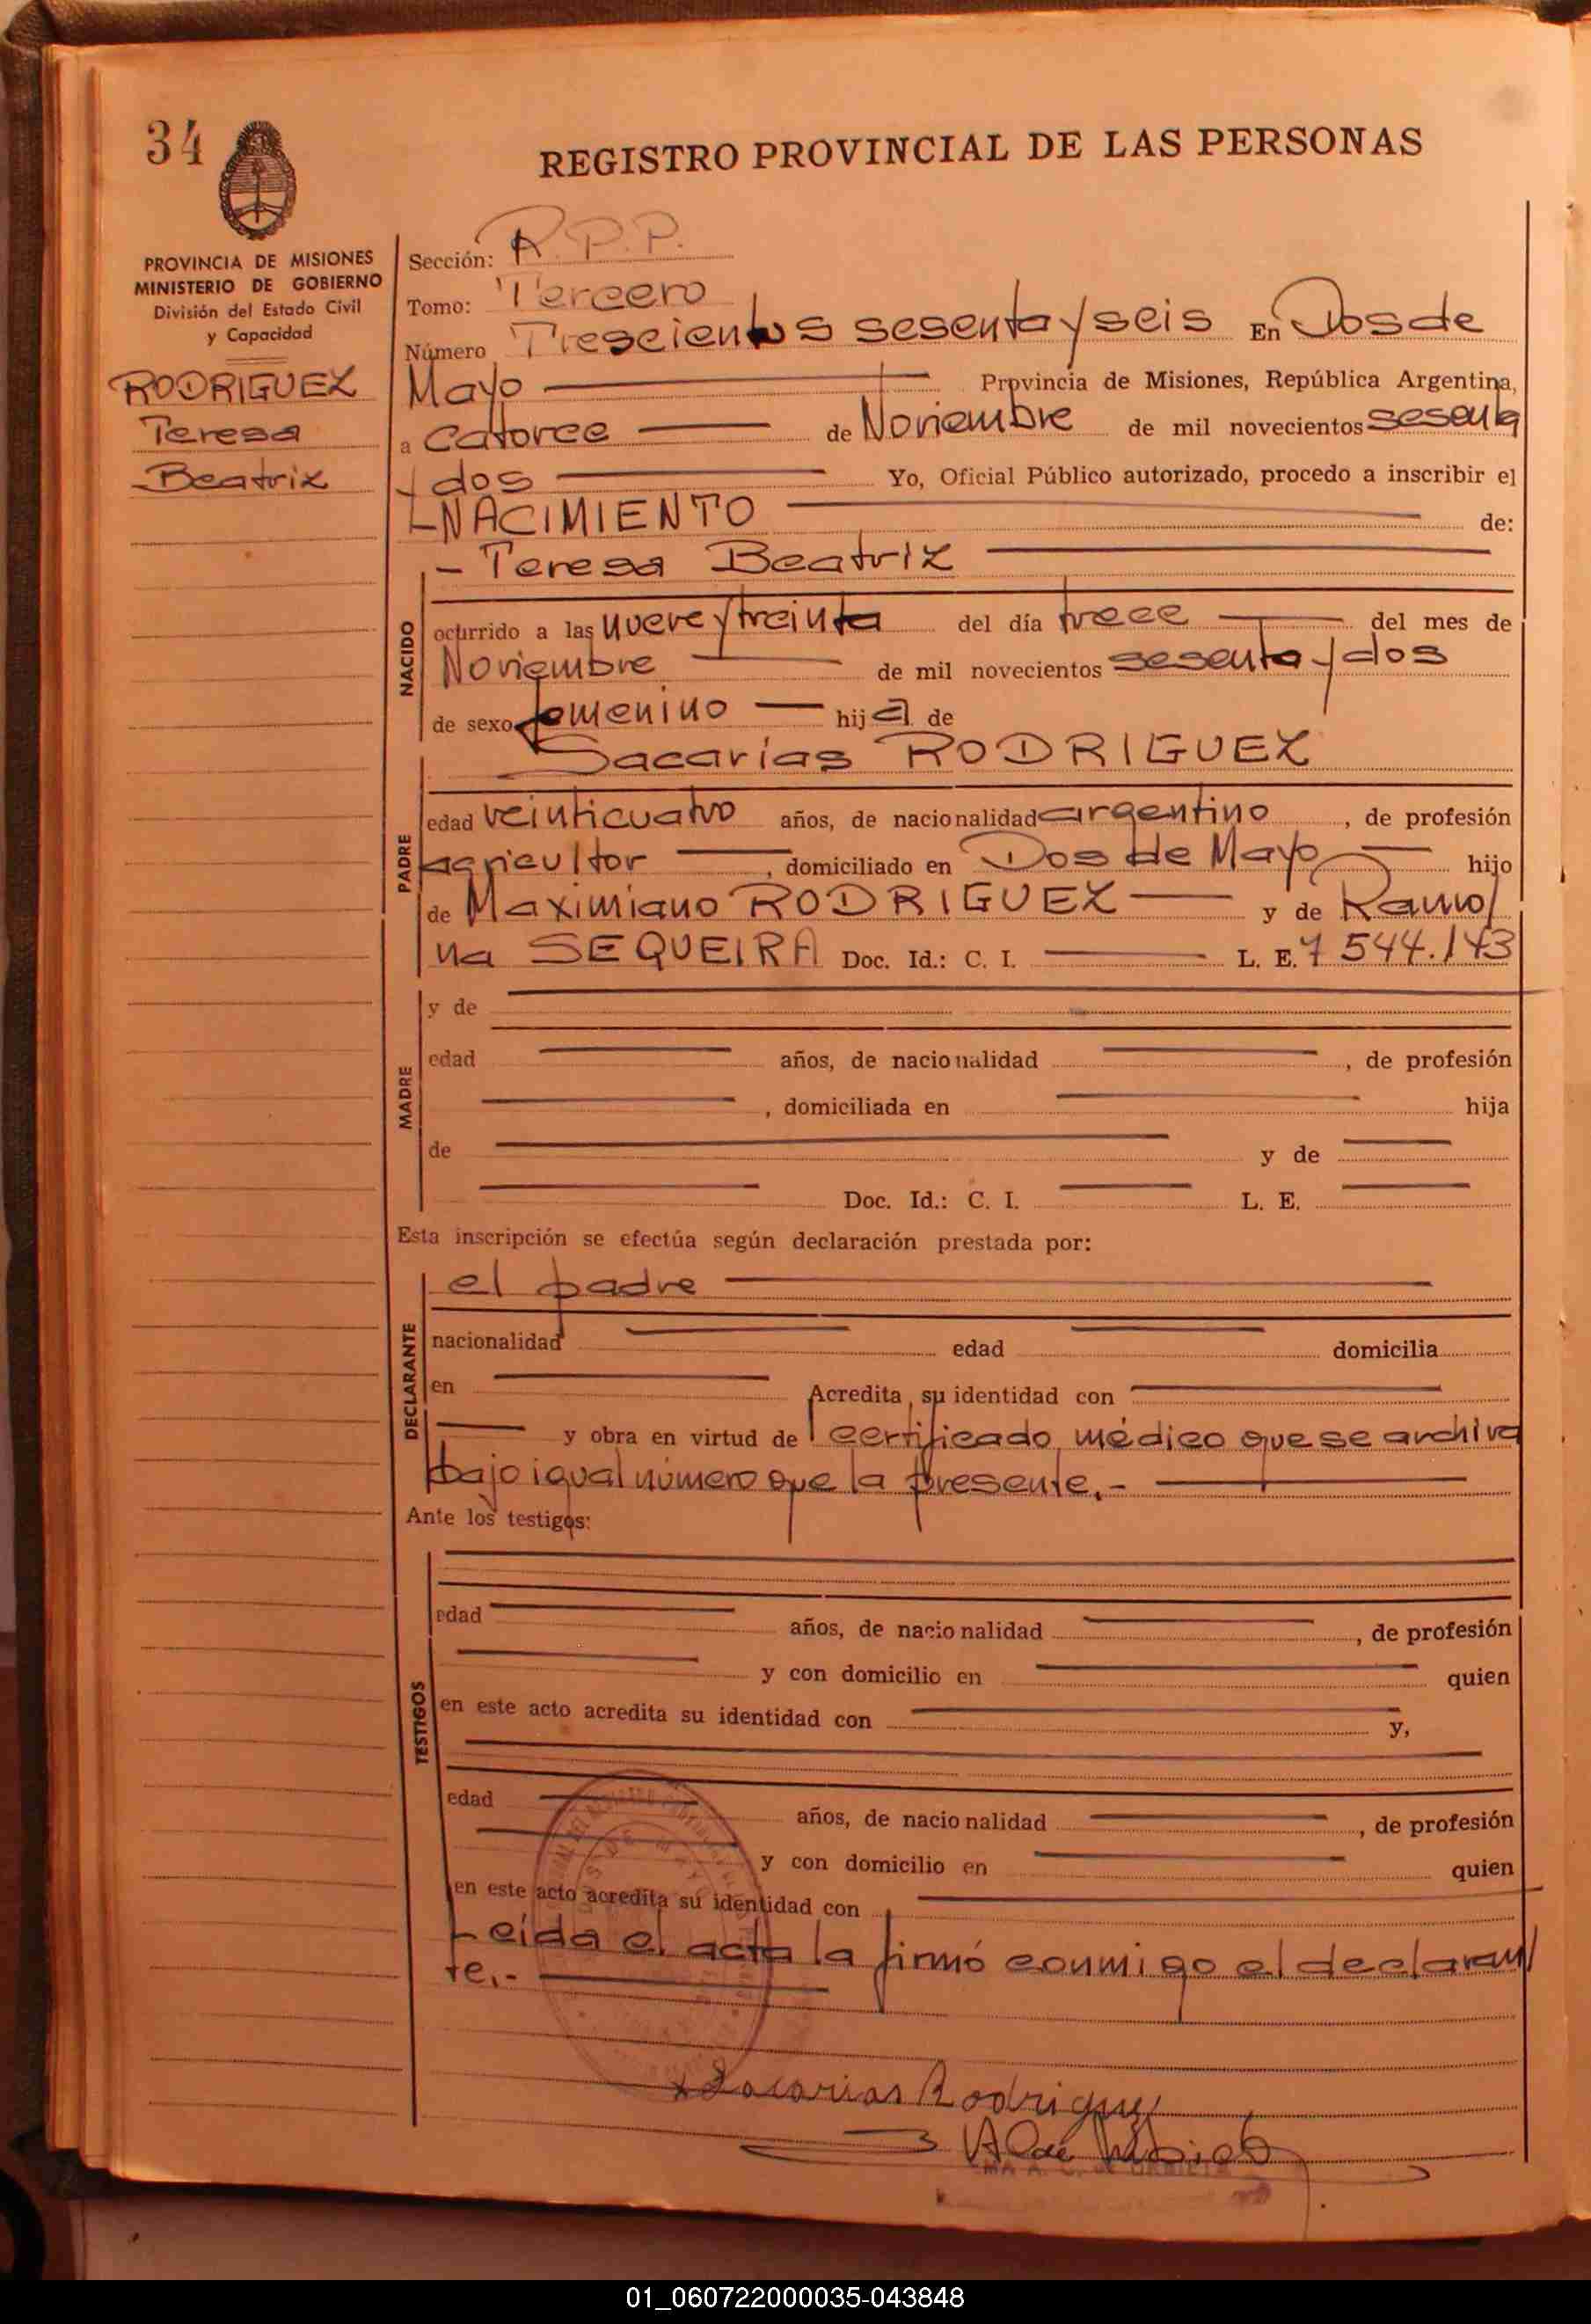 34
REGISTRO PROVINCIAL DE LAS PERSONAS
PROVINCIA DE MISIONES
MINISTERIO DE GOBIERNO
División del Estado Civil
y Capacidad
RODRIGUEZ
Teresa
Beatriz
Sección: R.P.P.
Tomo: Tercero
Número Trescientos sesenta y seis En Dos de
Mayo Provincia de Misiones, República Argentina,
a Catorce de Noviembre de mil novecientos sesenta
y dos Yo, Oficial Público autorizado, procedo a inscribir el
NACIMIENTO de:
- Teresa Beatriz
NACIDO
ocurrido a las nueve y treinta del día trece del mes de
Noviembre de mil novecientos sesenta y dos
de sexo femenino hija de
Sacarías RODRIGUEZ
PADRE
edad veinticuatro años, de nacionalidad argentino, de profesión
agricultor, domiciliado en Dos de Mayo hijo
de Maximiano RODRIGUEZ y de Ramo
na SEQUEIRA Doc. Id.: C. I. L. E. 7 544.143
MADRE
y de
edad años, de nacionalidad , de profesión
, domiciliada en hija
de y de
Doc. Id.: C. I. L. E.
Esta inscripción se efectúa según declaración prestada por:
DECLARANTE
el padre
nacionalidad edad domicilia
en Acredita su identidad con
y obra en virtud de certificado médico que se archiva
bajo igual número que la presente.-
Ante los testigos:
TESTIGOS
edad años, de nacionalidad , de profesión
y con domicilio en quien
en este acto acredita su identidad con y,
edad años, de nacionalidad , de profesión
y con domicilio en quien
en este acto acredita su identidad con
Leída el acta la firmó conmigo el declaran
te.-
Sacarias Rodriguez
01_060722000035-043848